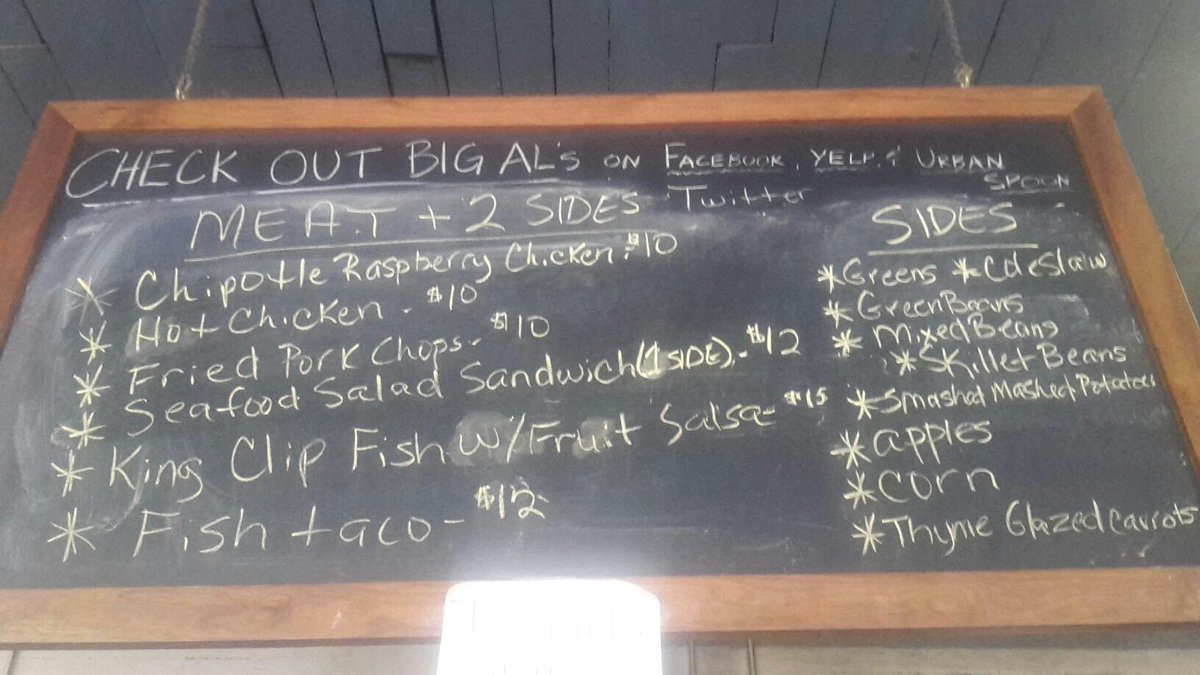 CHECK OUT BIG AL's ON FACEBOOK, YELP, & URBAN SPOON
Twitter
MEAT + 2 SIDES
* Chipotle Raspberry Chicken - $10
* Hot Chicken - $10
* Fried Pork Chops - $10
* Seafood Salad Sandwich (1 SIDE) - $12
* King Clip Fish w/Fruit Salsa - $15
* Fish taco - $12
SIDES
* Greens * Coleslaw
* Green Beans
* Mixed Beans
* Skillet Beans
* Smashed Mashed Potatoes
* apples
* corn
* Thyme Glazed carrots